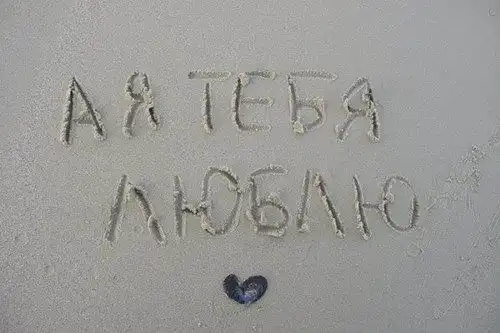 А Я ТЕБЯ
ЛЮБЛЮ